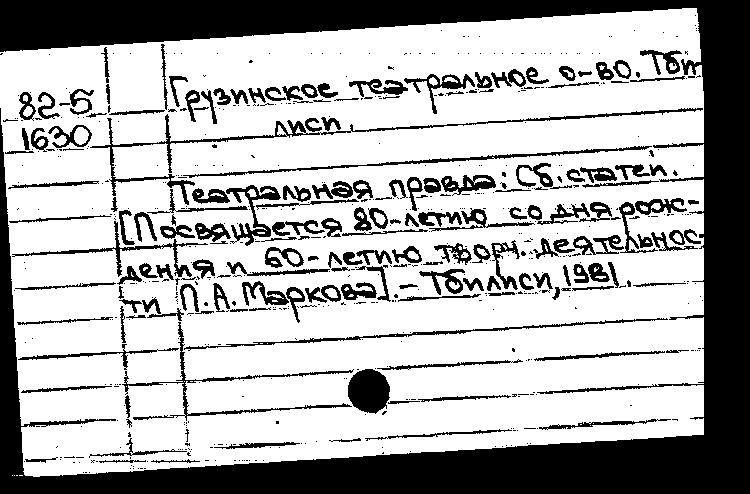 82-5
1630
Грузинское театральное о-во. Тби-
лиси.
Театральная правда: Сб. статей.
[Посвящается 80-летию со дня рож-
дения и 60-летию творч. деятельнос-
ти П.А. Маркова]. – Тбилиси, 1981.